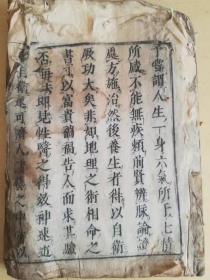 予嘗謂人生一身六氣所干七情
所感不能無疾頼前賢辨脉論證
處方施治然後養生者得以自衛
厥功大矣非如地理之術相命之
書可以富貴禍福告人而求其驗
否毋失理見性醫之得效神速近
自衛遠可濟人